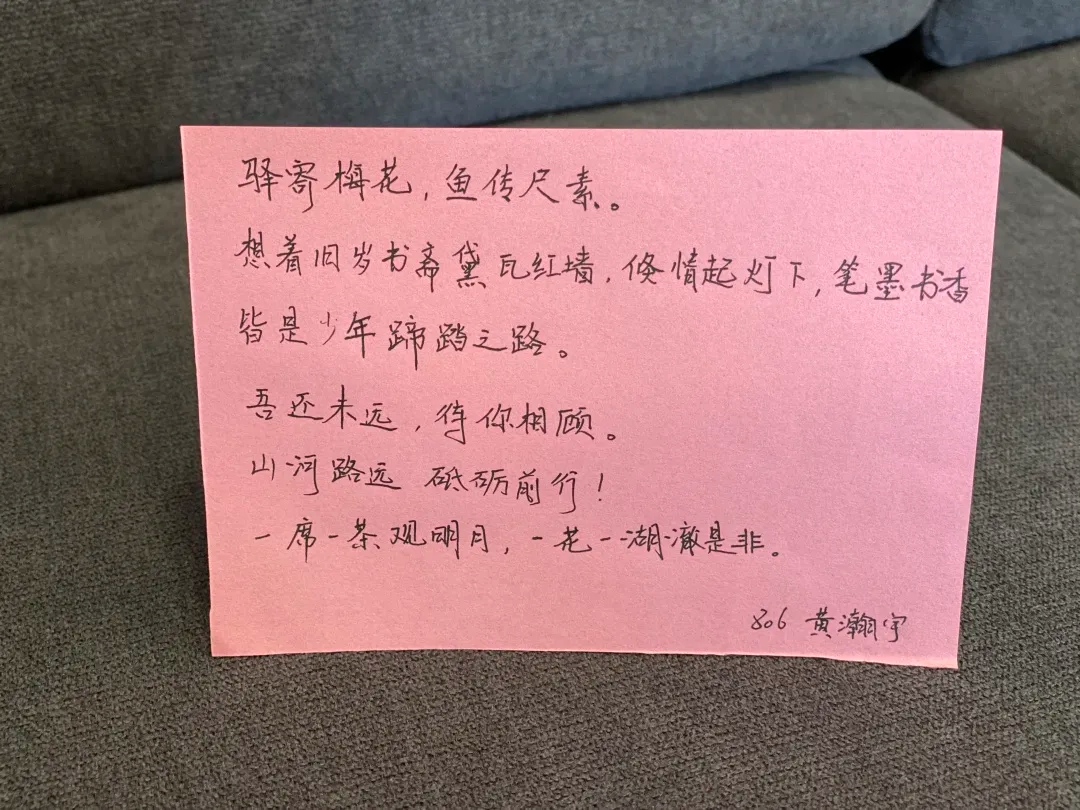 驿寄梅花，鱼传尺素。
想着旧岁书斋黛瓦红墙，倏情起灯下，笔墨书香
皆是少年蹄踏之路。
吾还未远，待你相顾。
山河路远 砥砺前行！
一席一茶观明月，一花一湖澈是非。
806 黄瀚宇